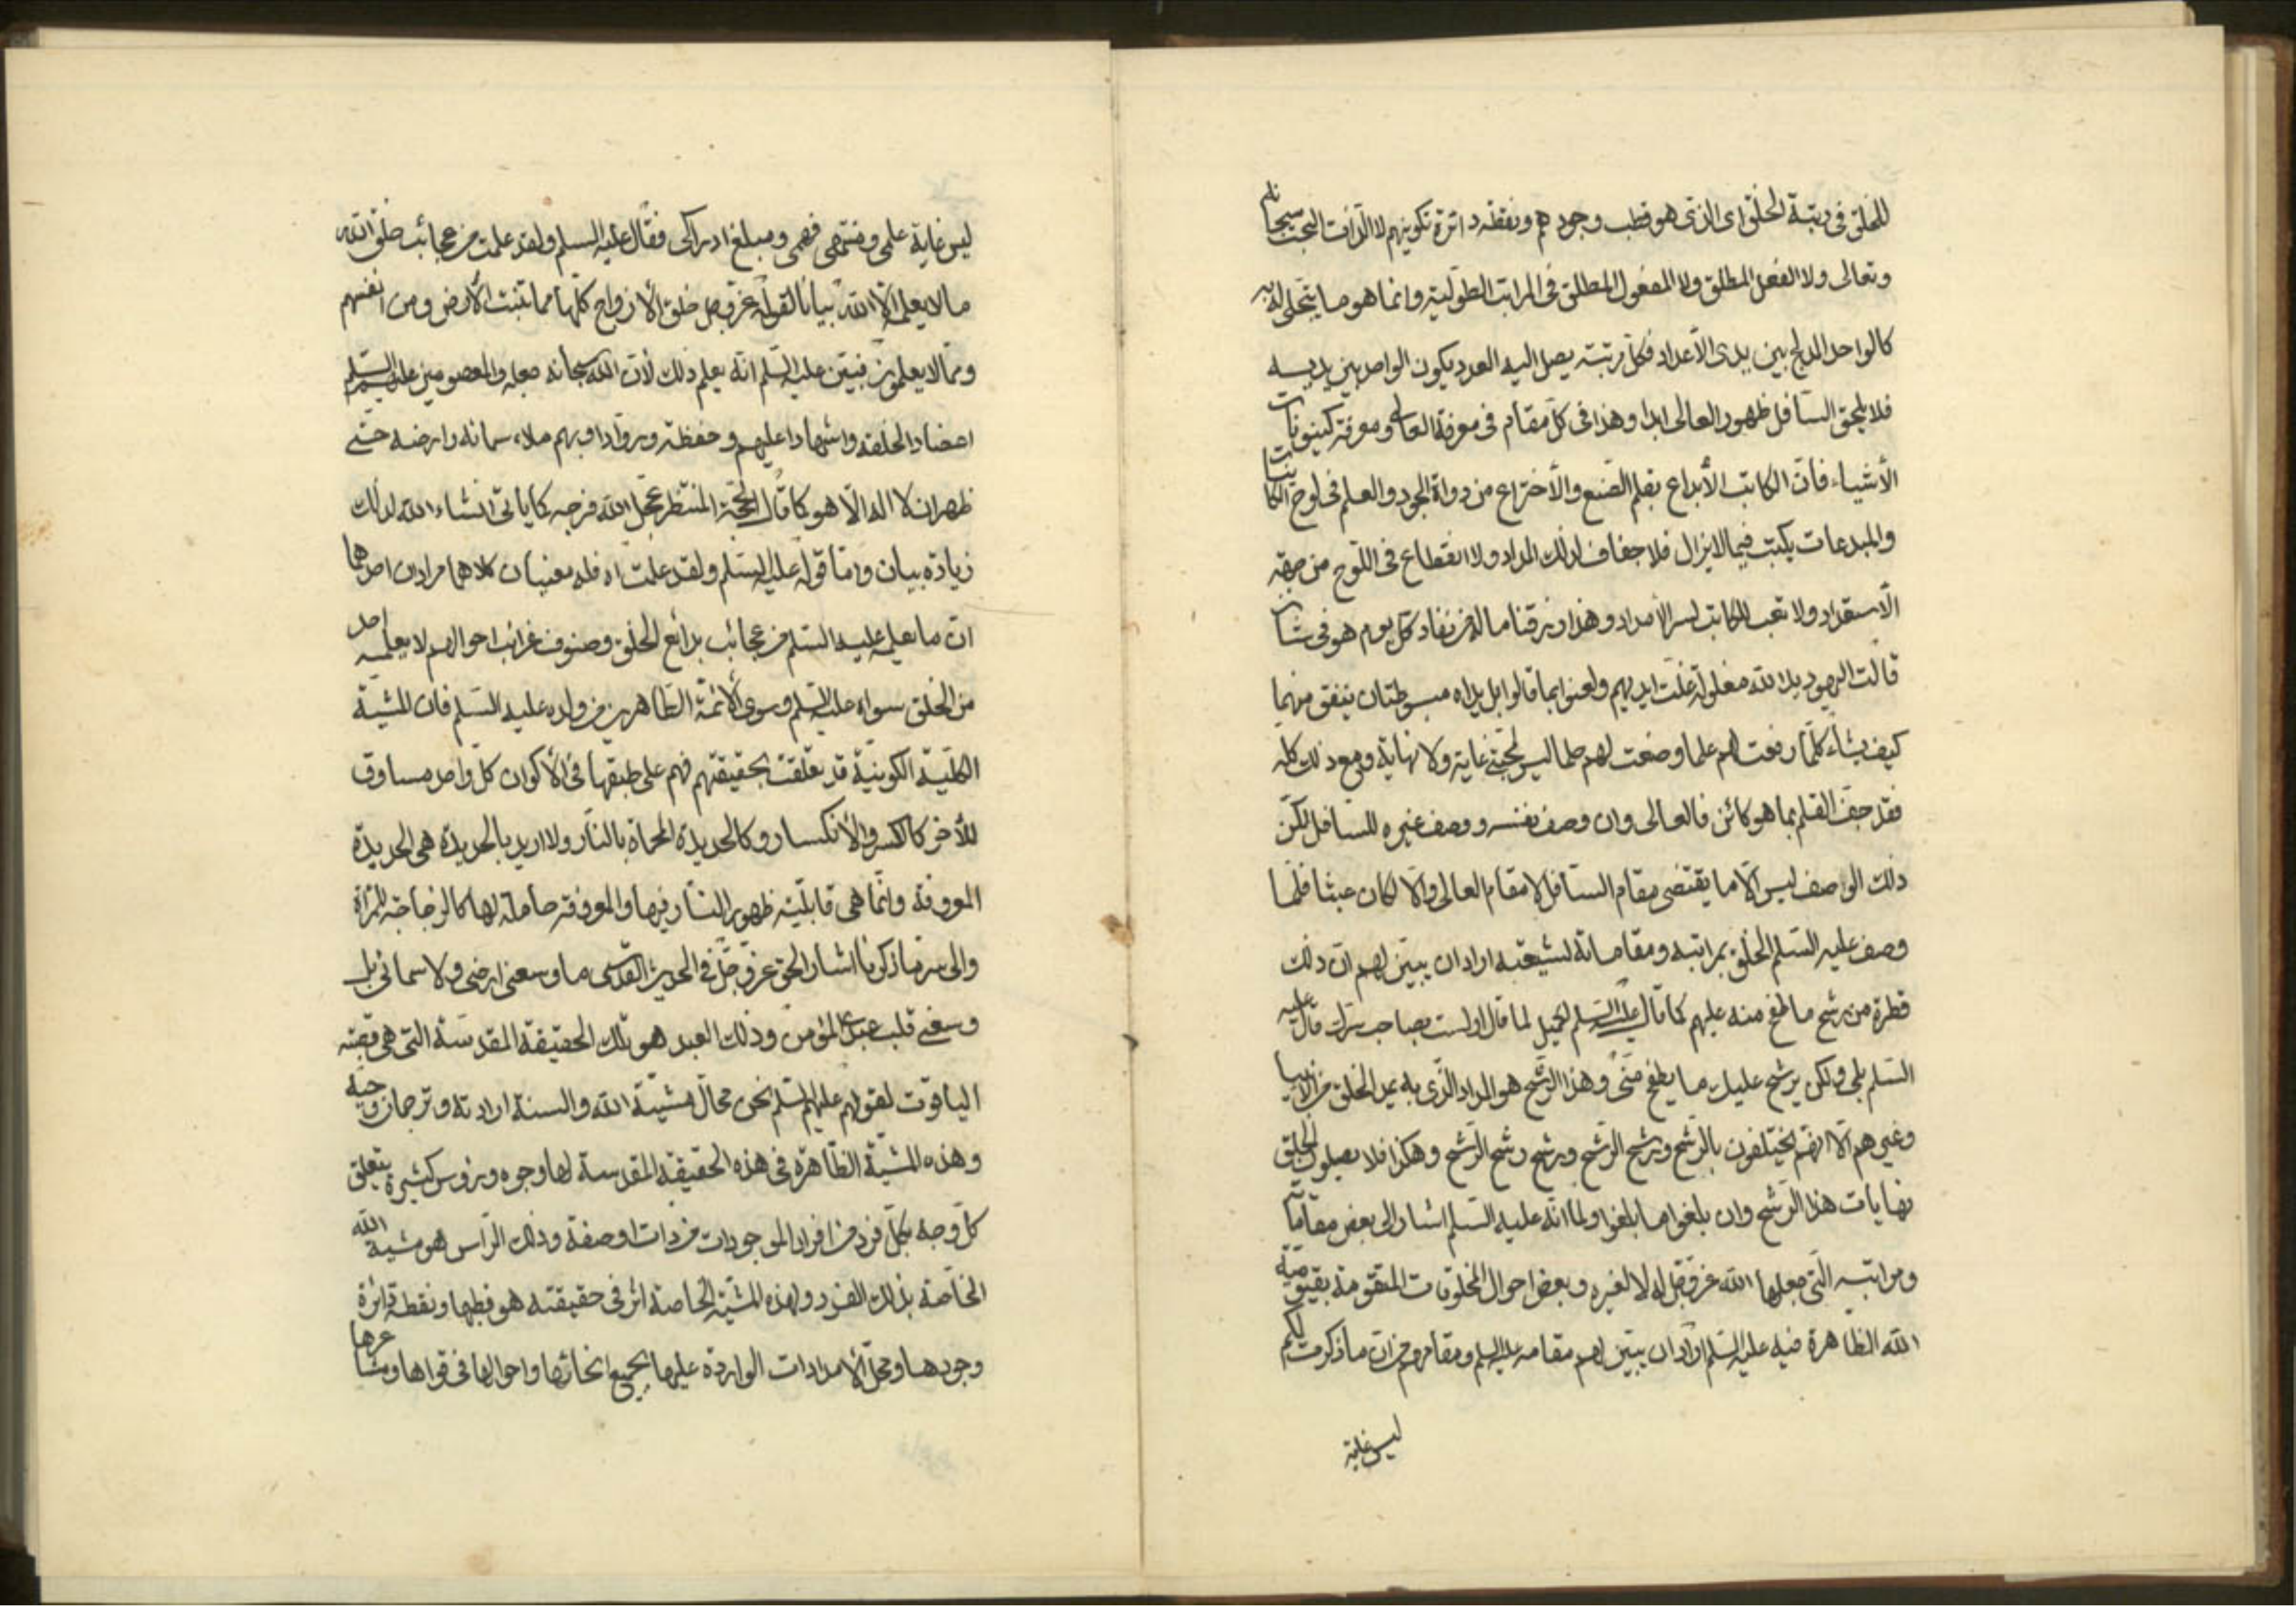 للخلق فى رتبة الخلق اى الذى هو قطب وجودهم ونقطة دائرة تكوينهم لا الذات البحت سبحانه
وتعالى ولا الفعل المطلق ولا المفعول المطلق فى المراتب الطولية وانما هو ما يتجلى له به
كالواحد المدلج بين يدى الأعداد فكل مرتبة يصل اليه العدد يكون الواحد بين يديه
فلا يلحق السافل ظهور العالى ابدا وهذا فى كل مقام فى معرفة العالى ومعرفة كينونات
الأشياء فان الكاتب الأبداع بقلم الصنع والأختراع من دواة الجود والعلم فى لوح الكائنات
والمبدعات يكتب فيما لا يزال فلا جفاف لذلك المداد ولا انقطاع فى اللوح من جهة
الاستعداد ولا تعب للكاتب لسر الأمداد وهذا رزقنا ما له من نفاد كل يوم هو فى شأن
قالت اليهود يد الله مغلولة غلت ايديهم ولعنوا بما قالوا بل يداه مبسوطتان ينفق منهما
كيف يشاء كلما رفعت لهم علما وضعت لهم حلما ليس لمحبتى غاية ولا نهاية ومع ذلك كله
فقد جف القلم بما هو كائن فالعالى وان وصف نفسه ووصف غيره للسافل لكن
ذلك الوصف ليس الا ما يقتضى مقام السافل لا مقام العالى والا لكان عبثا فلما
وصف عليه السلم الخلق بمراتبه ومقاماته لشيعته اراد ان يبين لهم ان ذلك
قطرة من رشح ما طفح منه عليهم كما قال عليه السلم لكميل لما قال اولست بصاحب سرك قال عليه
السلم بلى ولكن يرشح عليك ما يطفح منى وهذا الرشح هو المداد الذى به يمد الخلق من الانبياء
وغيرهم الا انهم يختلفون بالرشح ورشح الرشح ورشح رشح الرشح وهكذا فلا يصلون الخلق
نهايات هذا الرشح وان بلغوا ما بلغوا ولما انه عليه السلم اشار الى بعض مقاماته
ومراتبه التى جعلها الله عز وجل له لا لغيره وبعض احوال المخلوقات المتقومة بقيومية
الله الظاهرة فيه عليه السلم اراد ان يبين لهم مقامه عليه السلم ومقامهم من ان ما ذكرت لكم
ليس غاية
ليس غاية علمى ومنتهى فهمى ومبلغ ادراكى فقال عليه السلم ولقد علمت من عجائب خلق الله
ما لا يعلمه الا الله بيانا لقوله عز وجل خلق الأزواج كلها مما تنبت الأرض ومن انفسهم
ومما لا يعلمون فبين عليه السلم انه يعلم ذلك لأن الله سبحانه جعله والمعصومين عليهم السلم
اعضادا لخلقه واشهادا عليهم وحفظة وروادا وبهم ملاء سمائه وارضه حتى
ظهر ان لا اله الا هو كما قال الحجة المنتظر عجل الله فرجه كما يأتى انشاء الله لذلك
زيادة بيان واما قوله عليه السلم ولقد علمت اه فله معنيان كلاهما مرادان احدهما
ان ما يعلمه عليه السلم من عجائب بدائع الخلق وصنوف غرائب احوالهم لا يعلمه احد
من الخلق سواه عليه السلم وسوى الأئمة الطاهرين من ولده عليه السلم فان المشية
الكلية الكونية قد تعلقت بحقيقتهم فهم على طبقها فى الأكوان كل واحد مساوق
للأخر كالكسر والأنكسار وكالحديدة المحماة بالنار ولا اريد بالحديدة هى الحديدة
المعروفة وانما هى قابلية ظهور النار فيها والمعروفة حاملة لها كالزجاجة للمرآة
والى سر ما ذكرنا اشار الحق عز وجل فى الحديث القدسى ما وسعنى ارضى ولا سمائى بل
وسعنى قلب عبدى المؤمن وذلك العبد هو تلك الحقيقة المقدسة التى هى قصبة
الياقوت لقولهم عليهم السلم نحن محال مشية الله والسنة ارادته وتراجمة وحيه
وهذه المشية الظاهرة فى هذه الحقيقة المقدسة لها وجوه ورؤس كثيرة يتعلق
كل وجه بكل فرد من افراد الموجودات من ذات او صفة وذلك الرأس هو مشية الله
الخاصة بذلك الفرد ولهذه المشية الخاصة اثر فى حقيقته هو قطبها ونقطة دائرة
وجودها ومحل الأمدادات الواردة عليها بجميع انحائها واحوالها فى قواها ومشاعرها